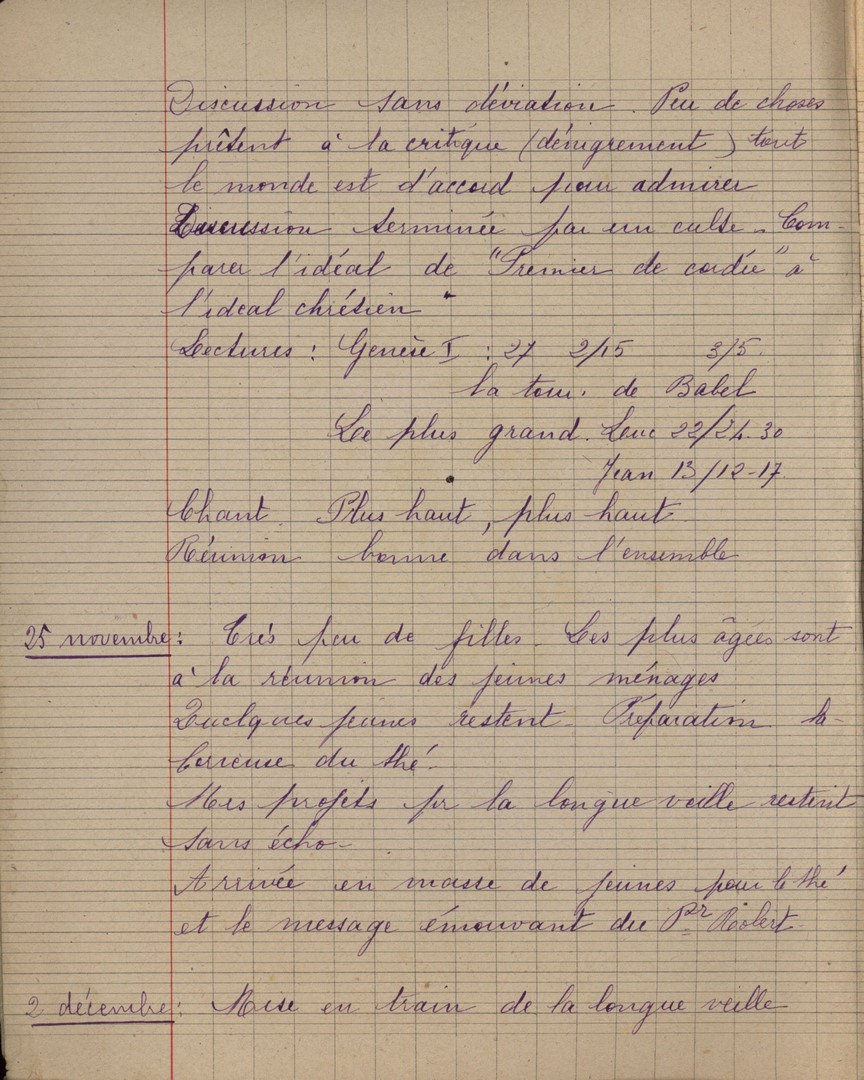 Discussion sans déviation. Peu de choses
prêtent à la critique (dénigrement) tout
le monde est d'accord pour admirer
Discussion terminée par un culte - Com-
parer l'idéal de "Premier de cordée" à
l'ideal chrétien
Lectures : Genèse I : 27 2/15 3/5.
la tour de Babel
Le plus grand. Luc 22/24.30
Jean 13/12-17
Chant. Plus haut, plus haut
Réunion bonne dans l'ensemble
25 novembre : Très peu de filles. Les plus âgées sont
à la réunion des jeunes ménages
Quelques jeunes restent. Préparation la-
borieuse du thé.
Mes projets pr la longue veille restent
sans écho -
Arrivée en masse de jeunes pour le thé
et le message émouvant du Pr Robert.
2 décembre : Mise en train de la longue veille